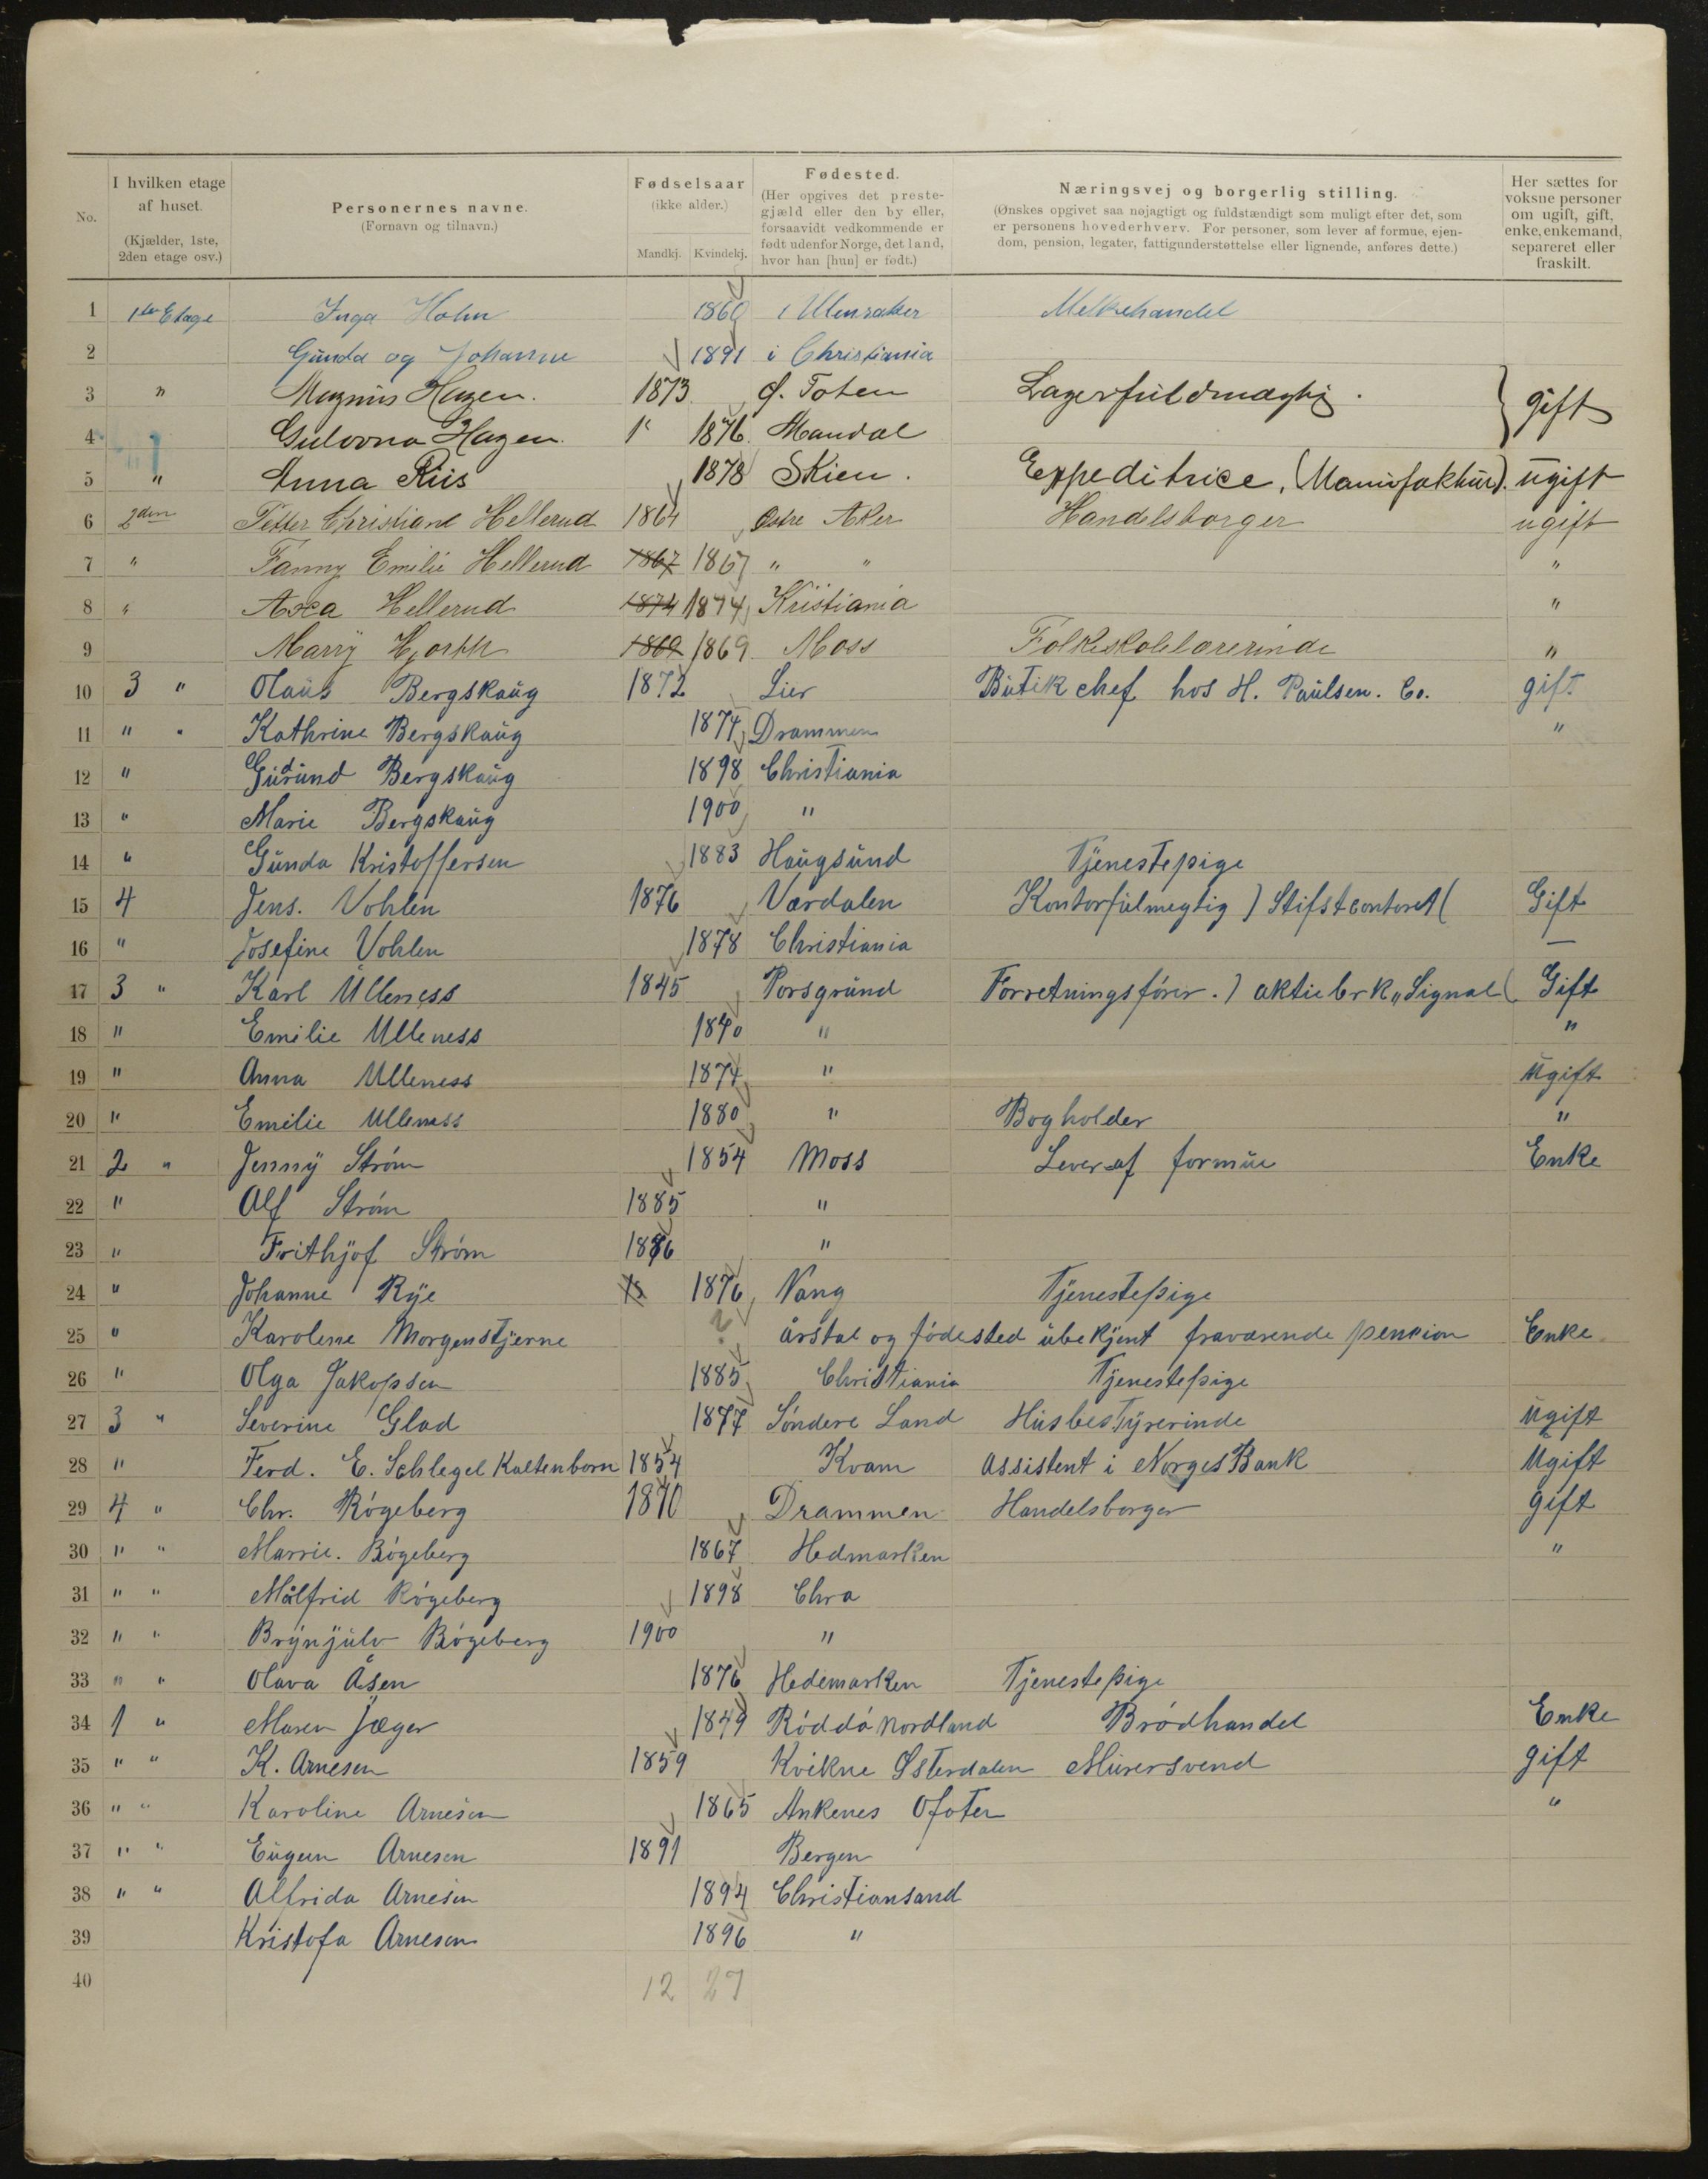 No. | I hvilken etage af huset. (Kjælder, 1ste, 2den etage osv.) | Personernes navne. (Fornavn og tilnavn.) | Fødselsaar (ikke alder.) Mandkj. Kvindekj. | Fødested. (Her opgives det prestegjæld eller den by eller, forsaavidt vedkommende er født udenfor Norge, det land, hvor han [hun] er født.) | Næringsvej og borgerlig stilling. (Ønskes opgivet saa nøjagtigt og fuldstændigt som muligt efter det, som er personens hovederhverv. For personer, som lever af formue, ejendom, pension, legater, fattigunderstøttelse eller lignende, anføres dette.) | Her sættes for voksne personer om ugift, gift, enke, enkemand, separeret eller fraskilt.
1 1ste Etage Inga Holm 1860 i Ullensaker Melkehandel
2 Gunda og Johanne 1891 i Christiania
3 " Magnus Hagen. 1873 Ø. Toten Lagerfuldmægtig. gift
4 " Gulovna Hagen. 1876. Mandal
5 " Anna Riis 1878 Skien. Expeditrice, (Manufaktur). ugift
6 2den Petter Christians Hellerud 1864 Østre Aker Handelsborger ugift
7 " Fanny Emilie Hellerud 1867 1867 " " "
8 " Asea Hellerud 1874 1874 Kristiania "
9 Marry Hjorth 1869 1869. Moss Folkeskolelærerinde "
10 3 " Olaus Bergskaug 1872 Lier Butikchef hos H. Paulsen. Co. gift
11 " " Kathrine Bergskaug 1874 Drammen "
12 " Gudrund Bergskaug 1898 Christiania
13 " Marie Bergskaug 1900 "
14 " Gunda Kristoffersen 1883 Haugsund Tjenestepige
15 4 Jens. Vohlen 1876 Værdalen Kontorfulmegtig ) Stiftscontoret ( Gift
16 " Josefine Vohlen 1878 Christiania —
17 3 " Karl Ulleness 1845 Porsgrund Forretningsfører. ) aktiebrk „Signal ( Gift
18 " Emilie Ulleness 1840 " "
19 " Anna Ulleness 1874 " Ugift
20 " Emilie Ulleness 1880 " Bogholder "
21 2 " Jenny Strøm 1854 Moss Lever af formue Enke
22 " Alf Strøm 1885 "
23 " Frithjof Strøm 1886 "
24 " Johanne Rye 1876 Vang Tjenestepige
25 " Karolene Morgenstjerne ? årstal og fødested ubekjent fraværende pension Enke
26 " Olga Jakopsen 1885 Christiania Tjenestepige
27 3 " Severine Glad 1877 Søndere Land Husbestyrerinde Ugift
28 " Ferd. E. Schlegel Kaltenborn 1854 Kvam Assistent i Norges Bank Ugift
29 4 " Chr. Røgeberg 1870 Drammen Handelsborger gift
30 " " Marrie. Røgeberg 1867 Hedmarken "
31 " " Målfrid Røgeberg 1898 Chra
32 " " Brynjulv Røgeberg 1900 "
33 " " Olava Åsen 1876 Hedemarken Tjenestepige
34 1 " Maren Jæger 1849 Røddø Nordland Brødhandel Enke
35 " " K. Arnesen 1859 Kvikne Østerdalen Murersvend gift
36 " " Karoline Arnesen 1865 Ankenes Ofoten "
37 " " Eugen Arnesen 1891 Bergen
38 " " Alfrida Arnesen 1894 Christiansand
39 Kristofa Arnesen 1896 "
40 12 27